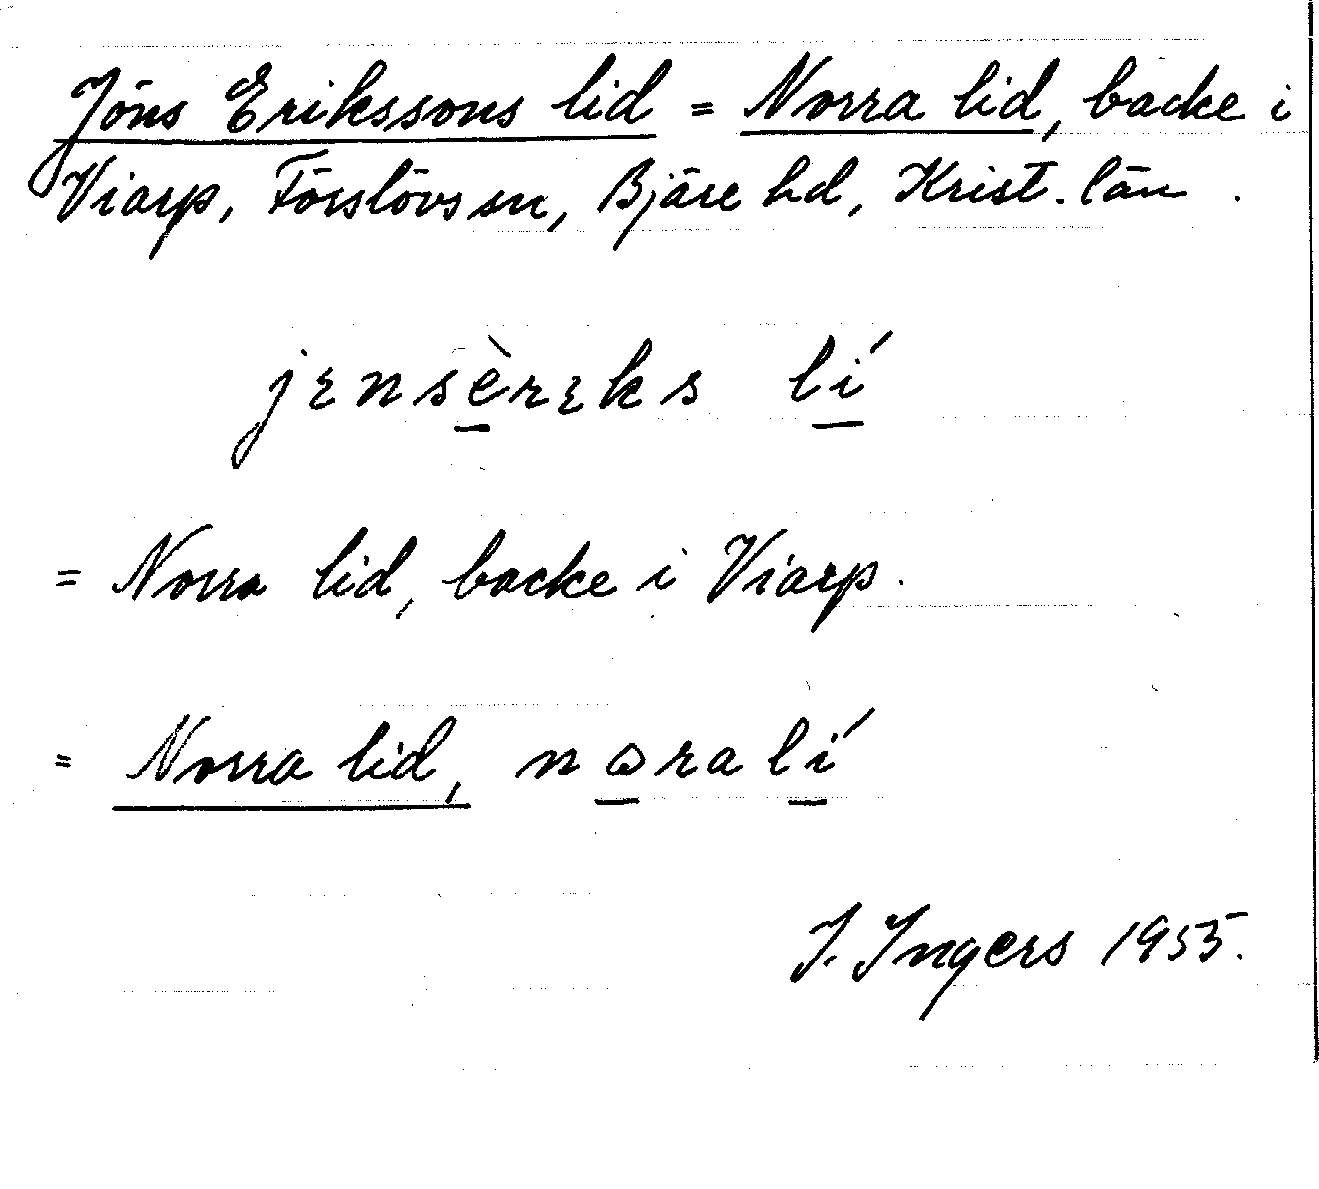 Jöns Erikssons lid = Norra lid, backe i
Viarp, Förslövs sn, Bjäre hd, Krist. län.
jɛnsèrɛks lí
= Norra lid, backe i Viarp.
= Norra lid, nɷra lí
I. Ingers 1955.